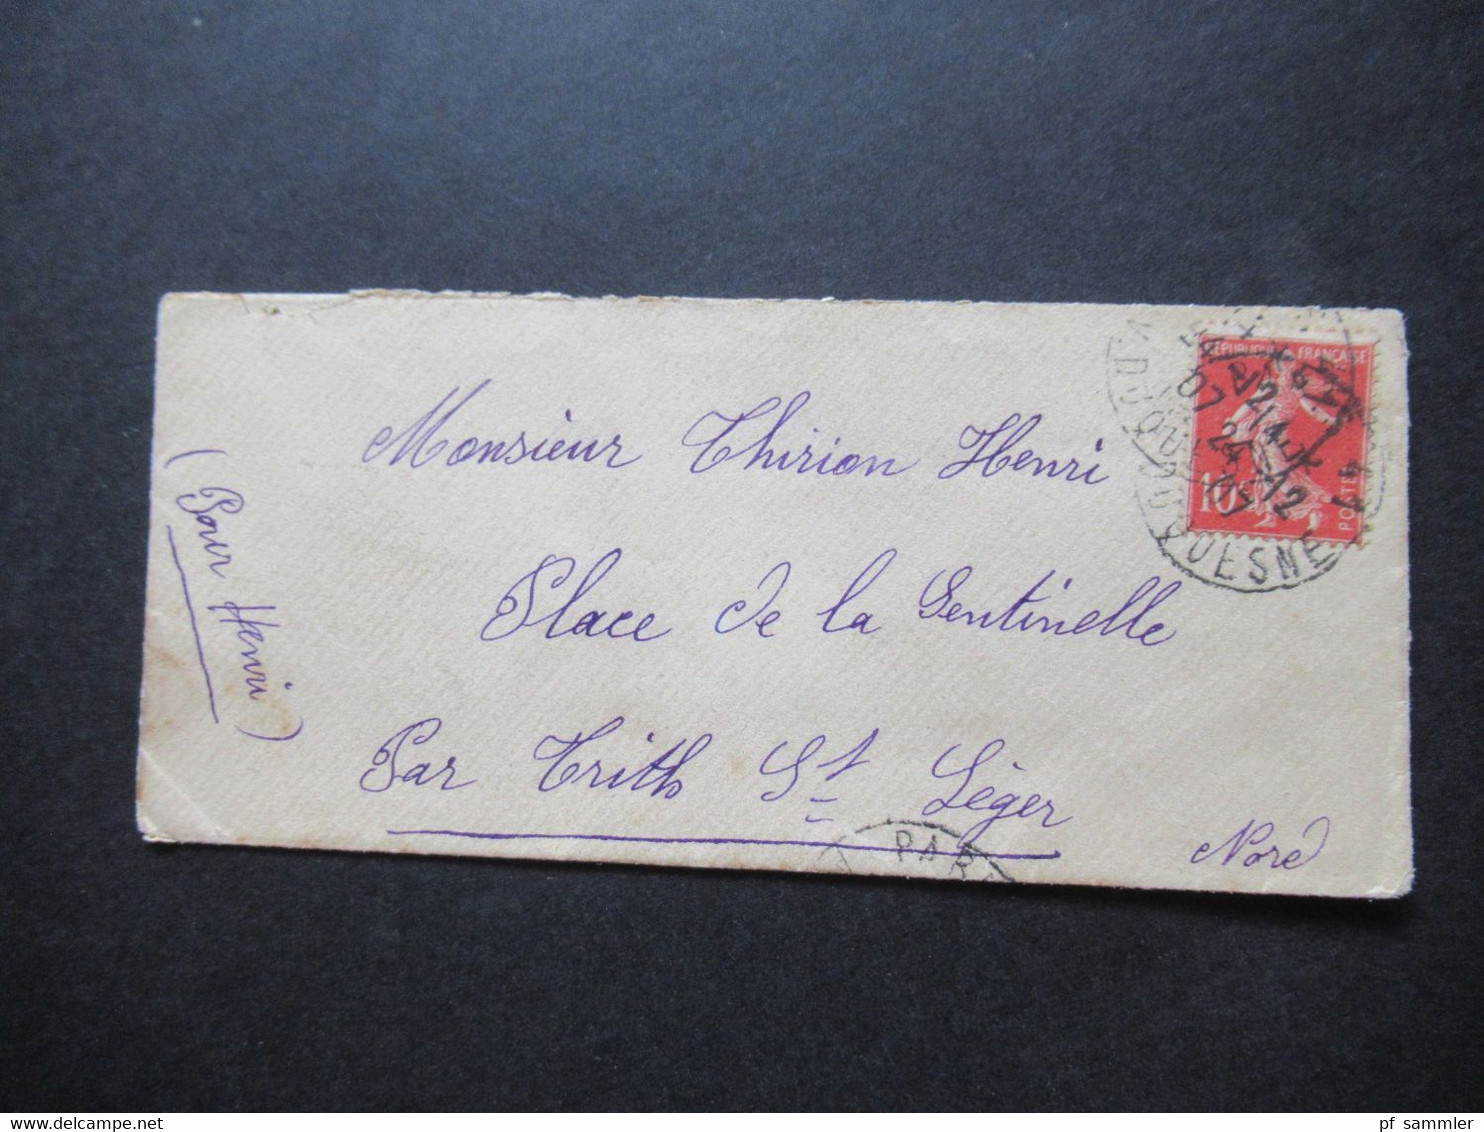 Monsieur Thirion Henri
Place de la Sentinelle
Par Trith St Léger
Nord
(Pour Henri)
RÉPUBLIQUE FRANÇAISE
10c
POSTES
24
12
07
PAR
pf sammler
www.delcampe.net